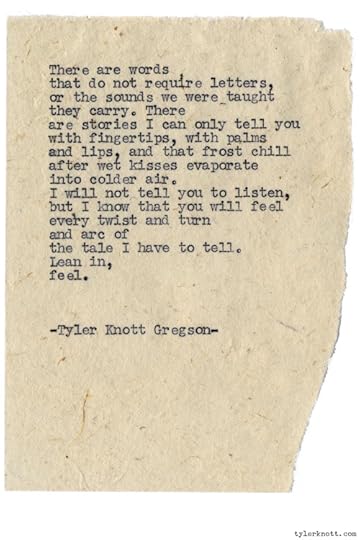 There are words
that do not require letters,
or the sounds we were taught
they carry. There
are stories I can only tell you
with fingertips, with palms
and lips, and that frost chill
after wet kisses evaporate
into colder air.
I will not tell you to listen,
but I know that you will feel
every twist and turn
and arc of
the tale I have to tell.
Lean in,
feel.
-Tyler Knott Gregson-
tylerknott.com